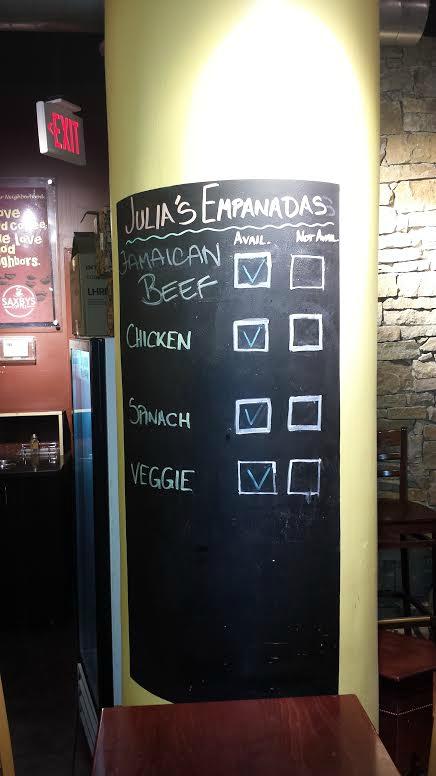 EXIT
JULIA'S EMPANADAS
AVAIL. NOT AVAIL.
JAMAICAN
BEEF
CHICKEN
SPINACH
VEGGIE
Neighborhood
ove
d Coffee,
e love
od
ighbors.
SAXBYS
COFFEE
LHR